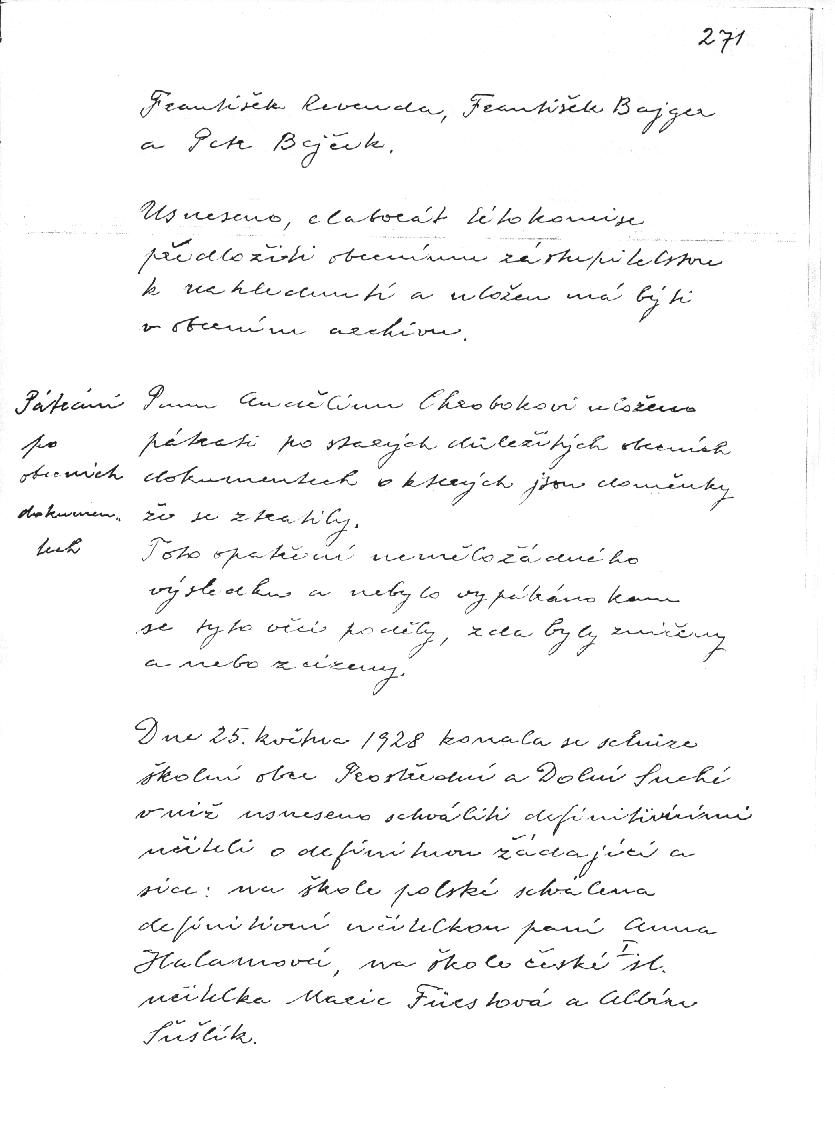 271
František Revenda, František Bajger
a Petr Bajčík.
Usneseno, elaborát této komise
předložiti obecnímu zastupitelstvu
k nahlédnutí a uložen má býti
v obecním archivu.
Pátrání
po
obecních
dokumen-
tech
Panu Andělínu Chrobokovi uloženo
pátrati po starých důležitých obecních
dokumentech o kterých jsou domněnky
že se ztratily.
Toto opatření nemělo žádného
výsledku a nebylo vypátráno kam
se tyto věci poděly, zda byly zničeny
a nebo zcizeny.
Dne 25. května 1928 konala se schůze
školní obce Prostřední a Dolní Suché
v níž usneseno schváliti definitivními
učiteli o definitivu žádající a
sice: na škole polské schválena
definitivní učitelkou paní Anna
Halamová, na škole české I st.
učitelka Marie Fürstová a Albín
Šušlík.